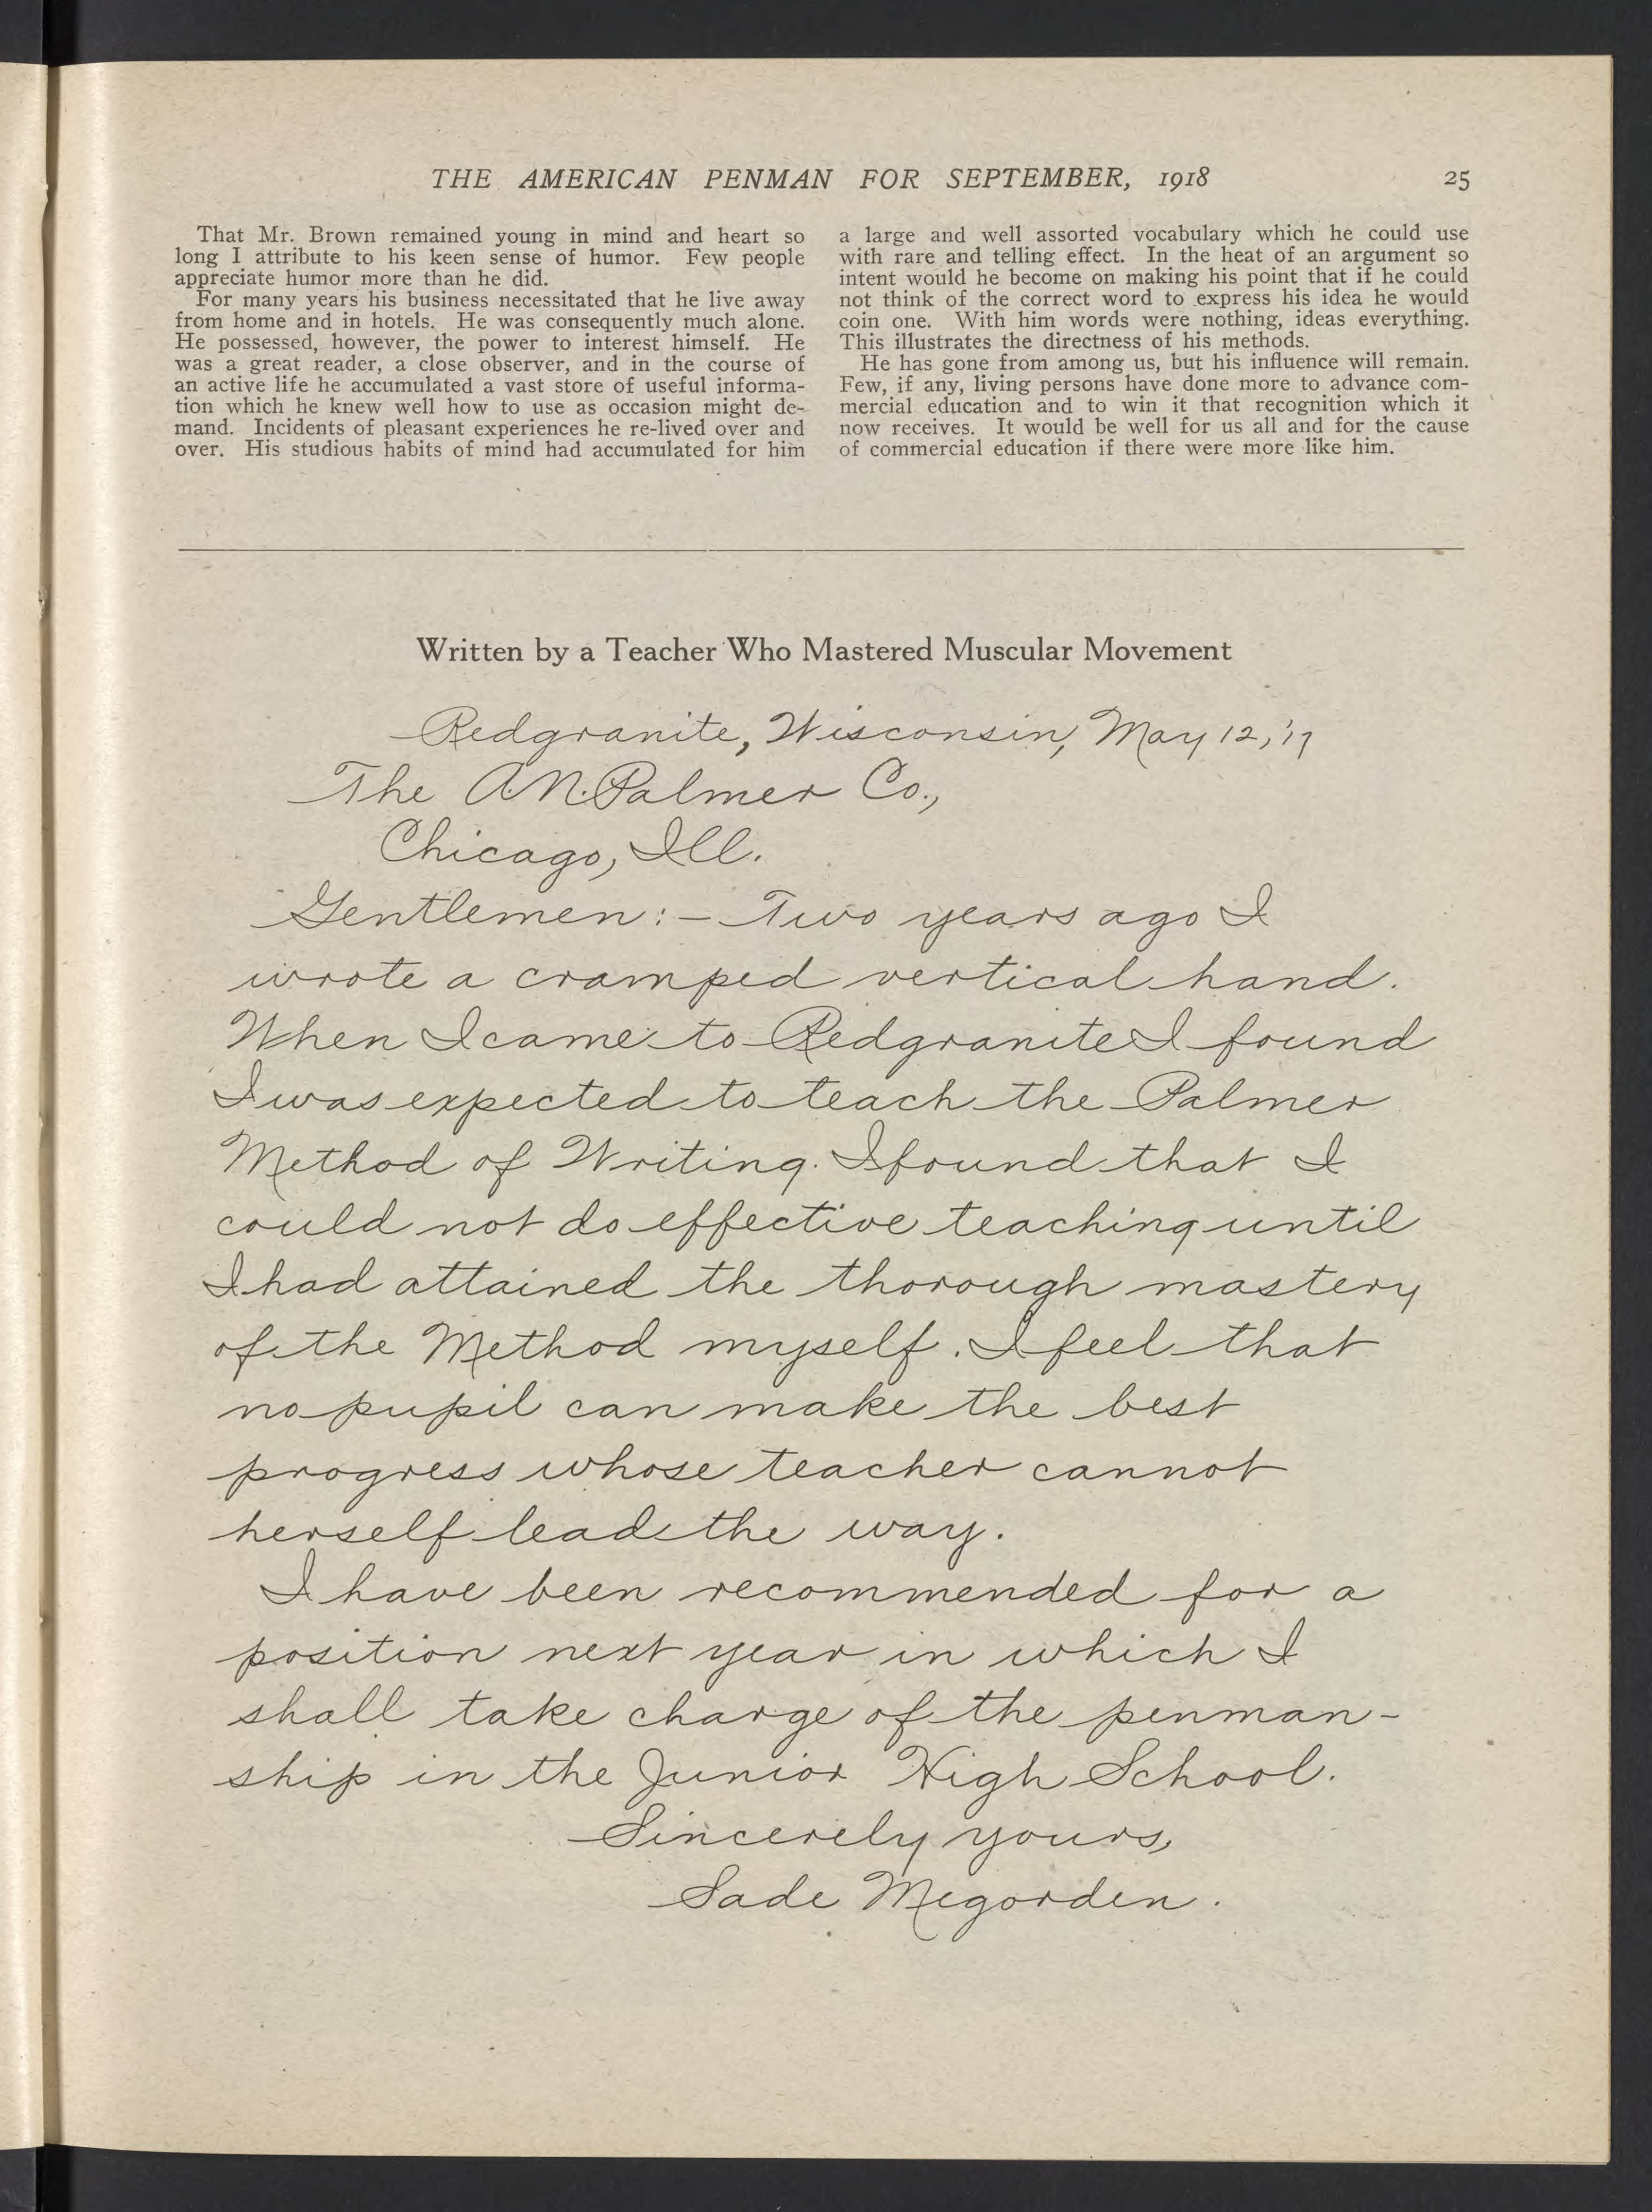 THE AMERICAN PENMAN FOR SEPTEMBER, 1918 25
That Mr. Brown remained young in mind and heart so
long I attribute to his keen sense of humor. Few people
appreciate humor more than he did.
For many years his business necessitated that he live away
from home and in hotels. He was consequently much alone.
He possessed, however, the power to interest himself. He
was a great reader, a close observer, and in the course of
an active life he accumulated a vast store of useful informa-
tion which he knew well how to use as occasion might de-
mand. Incidents of pleasant experiences he re-lived over and
over. His studious habits of mind had accumulated for him
a large and well assorted vocabulary which he could use
with rare and telling effect. In the heat of an argument so
intent would he become on making his point that if he could
not think of the correct word to express his idea he would
coin one. With him words were nothing, ideas everything.
This illustrates the directness of his methods.
He has gone from among us, but his influence will remain.
Few, if any, living persons have done more to advance com-
mercial education and to win it that recognition which it
now receives. It would be well for us all and for the cause
of commercial education if there were more like him.
Written by a Teacher Who Mastered Muscular Movement
Redgranite, Wisconsin, May 12, '17
The A. N. Palmer Co.,
Chicago, Ill.
Gentlemen:- Two years ago I
wrote a cramped vertical hand.
When I came to Redgranite I found
I was expected to teach the Palmer
Method of Writing. I found that I
could not do effective teaching until
I had attained the thorough mastery
of the Method myself. I feel that
no pupil can make the best
progress whose teacher cannot
herself lead the way.
I have been recommended for a
position next year in which I
shall take charge of the penman-
ship in the Junior High School.
Sincerely yours,
Sade Megorden.